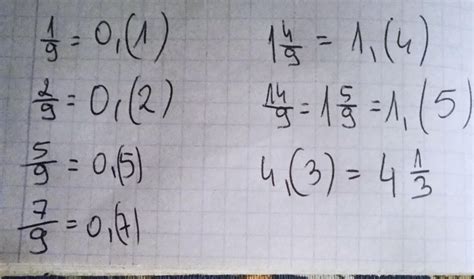 1/9 = 0,(1)
2/9 = 0,(2)
5/9 = 0,(5)
7/9 = 0,(7)
1 4/9 = 1,(4)
14/9 = 1 5/9 = 1,(5)
4,(3) = 4 1/3